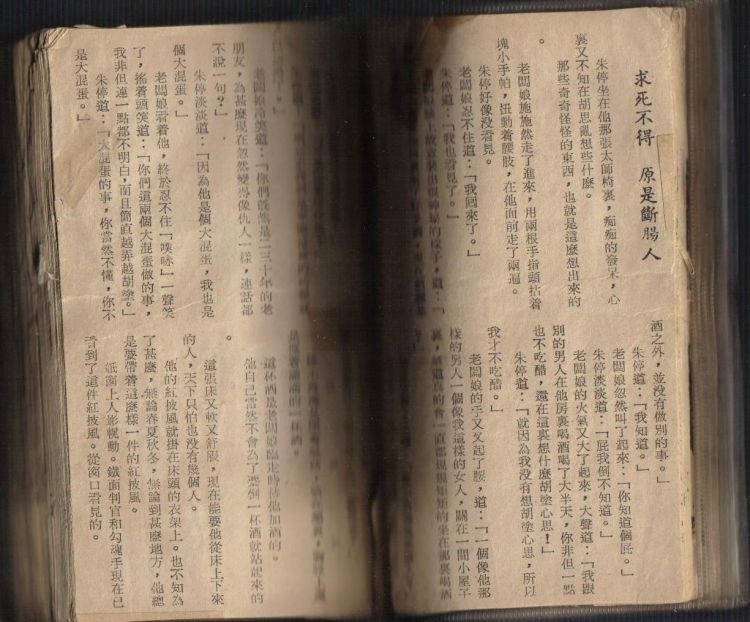 求死不得 原是斷腸人
朱停坐在他那張太師椅裏，痴痴的發呆，心
裏又不知在胡思亂想些什麼。
那些奇奇怪怪的東西，也就是這麼想出來的
。
老闆娘施施然走了進來，用兩根手指頭拈着
塊小手帕，扭動着腰肢，在他面前走了兩遍。
朱停好像沒看見。
老闆娘忍不住道：「我回來了。」
朱停道：「我也看見了。」
老闆娘臉上故意裝出很神秘的樣子，道：「
酒之外，並沒有做別的事。」
朱停道：「我知道。」
老闆娘忽然叫了起來：「你知道個屁。」
朱停淡淡道：「屁我倒不知道。」
老闆娘的火氣又大了起來，大聲道：「我跟
別的男人在他房裏喝酒喝了大半天，你非但一點
也不吃醋，還在這裏想什麼胡塗心思！」
朱停道：「就因為我沒有想胡塗心思，所以
我才不吃醋。」
老闆娘的手又叉起了腰，道：「一個像他那
樣的男人一個像我這樣的女人，關在一間小屋子
裏，難道真的會一直都規規矩矩的坐在那裏喝酒
老闆娘冷笑道：「你們既然是二三十年的老
朋友，為甚麼現在忽然變得像仇人一樣，連話都
不說一句？」
朱停淡淡道：「因為他是個大混蛋，我也是
個大混蛋。」
老闆娘看着他，終於忍不住「噗哧」一聲笑
了，搖着頭笑道：「你們這兩個大混蛋做的事，
我非但連一點都不明白，而且簡直越弄越胡塗。」
朱停道：「大混蛋的事，你當然不懂，你不
是大混蛋。」
是還着滿滿的一杯酒。
這杯酒是老闆娘臨走時替他加酒的。
他自己當然不會為了要倒一杯酒就站起來的
。
這張床又軟又舒服，現在能要他從床上下來
的人，天下只怕也沒有幾個人。
他的紅披風就掛在床頭的衣架上。也不知為
了甚麼，無論春夏秋冬，無論到甚麼地方，他總
是要帶着這麼樣一件的紅披風。
紙窗上人影幌動。鐵面判官和勾魂手現在已
看到了這件紅披風。從窗口看見的。